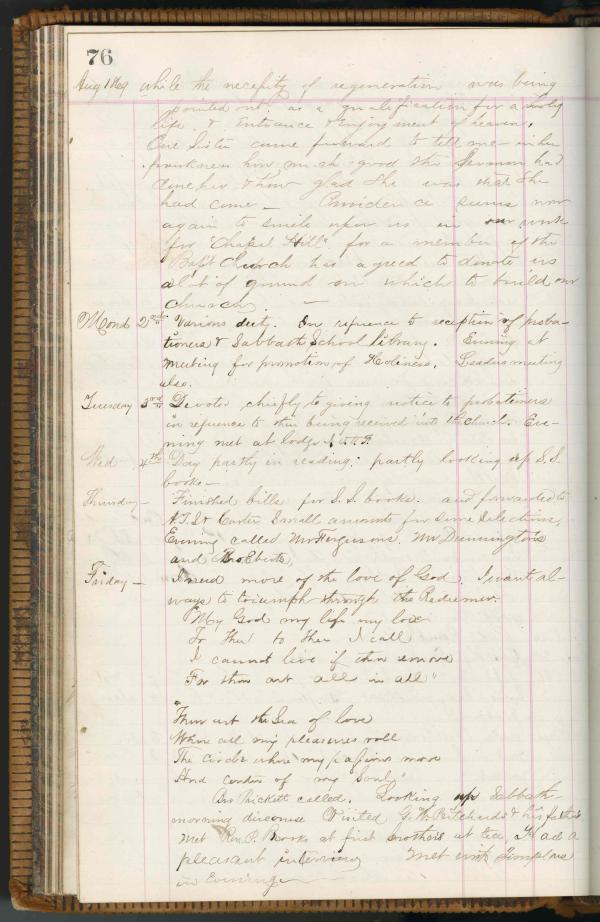 76
Aug 1869 while the necessity of regeneration was being
pointed out, as a qualification for a holy
life & Entrance & enjoyment of heaven.
One Sister came forward to tell me in her
frankness how much good the Sermon had
done her & how glad she was that she
had come — Providence seems now
again to smile upon us in our work
for "Chapel Hill" for a member of the
Bapt Church has agreed to donate us
a lot of ground on which to build our
church. —
Mond 2nd Various duty. In refrence to reception of proba-
tioners & Sabbath School library. Evening at
meeting for promotion of Holiness. Leaders meeting
also.
Tuesday 3rd Devoted chiefly to giving notice to probationers
in refrence to their being received into the church. Eve-
ning met at lodge
Wed 4th Day partly in reading; partly looking up S.S.
books —
Thursday — Finished bills for S.S. books. and forwarded to
Carter Small amounts for Some Selections,
Evening called Mr Fergusons. Mr Dunningtons
and Bro Eberts,
Friday — I need more of the love of God. I want al-
ways to triumph through the Redeemer.
"My God my life my love
To Thee to Thee I call
I cannot live if thou remove
For thou art all in all"
"Thou art the Sea of love
Where all my pleasures roll
The circle where my passions move
And centre of my Soul,"
Bro Prickett called. Looking up Sabbath
morning discourse Visited G. W. Pritchards & his fathers
Met Rev. P. Books at first brothers at tea Had a
pleasant interview Met with Templars
in Evening —